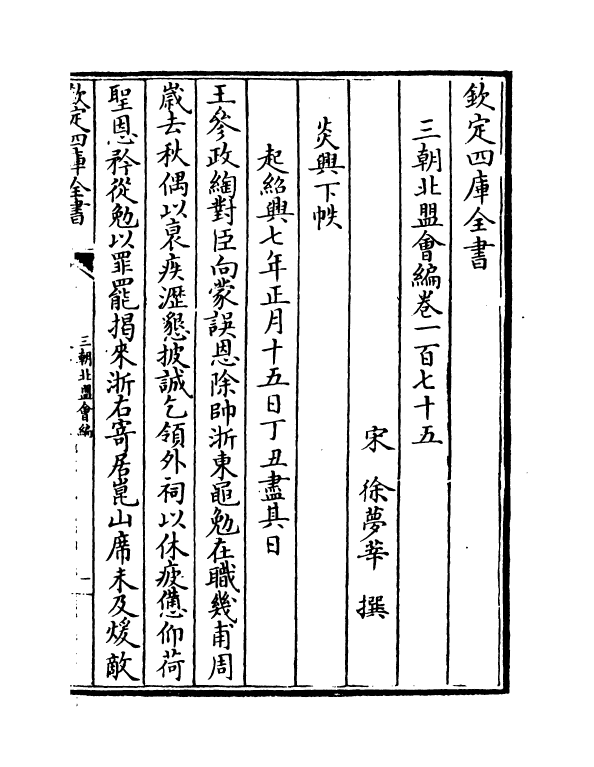 欽定四庫全書
三朝北盟會編卷一百七十五
宋 徐夢莘 撰
炎興下帙
起紹興七年正月十五日丁丑盡其日
王參政綯對臣向蒙誤恩除帥浙東黽勉在職幾甫周
嵗去秋偶以衰疾瀝懇披誠乞領外祠以休疲憊仰荷
聖恩矜從勉以罪罷揭來浙右寄居崑山席未及煖敵
欽定四庫全書
三朝北盟會編
一